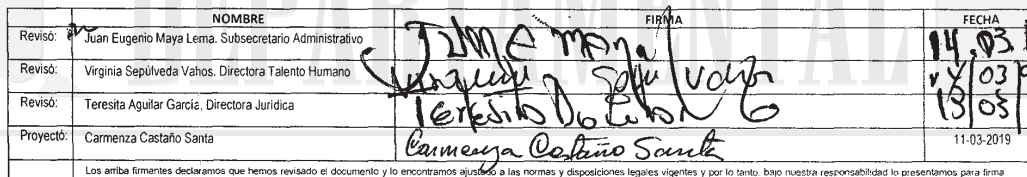 DEPARTAMENTAL
NOMBRE FIRMA FECHA
Revisó: Juan Eugenio Maya Lema. Subsecretario Administrativo 14.03
Revisó: Virginia Sepúlveda Vahos. Directora Talento Humano 03
Revisó: Teresita Aguilar García. Directora Jurídica 13 03
Proyectó: Carmenza Castaño Santa Carmenza Castaño Santa 11-03-2019
Los arriba firmantes declaramos que hemos revisado el documento y lo encontramos ajustado a las normas y disposiciones legales vigentes y por lo tanto, bajo nuestra responsabilidad lo presentamos para firma